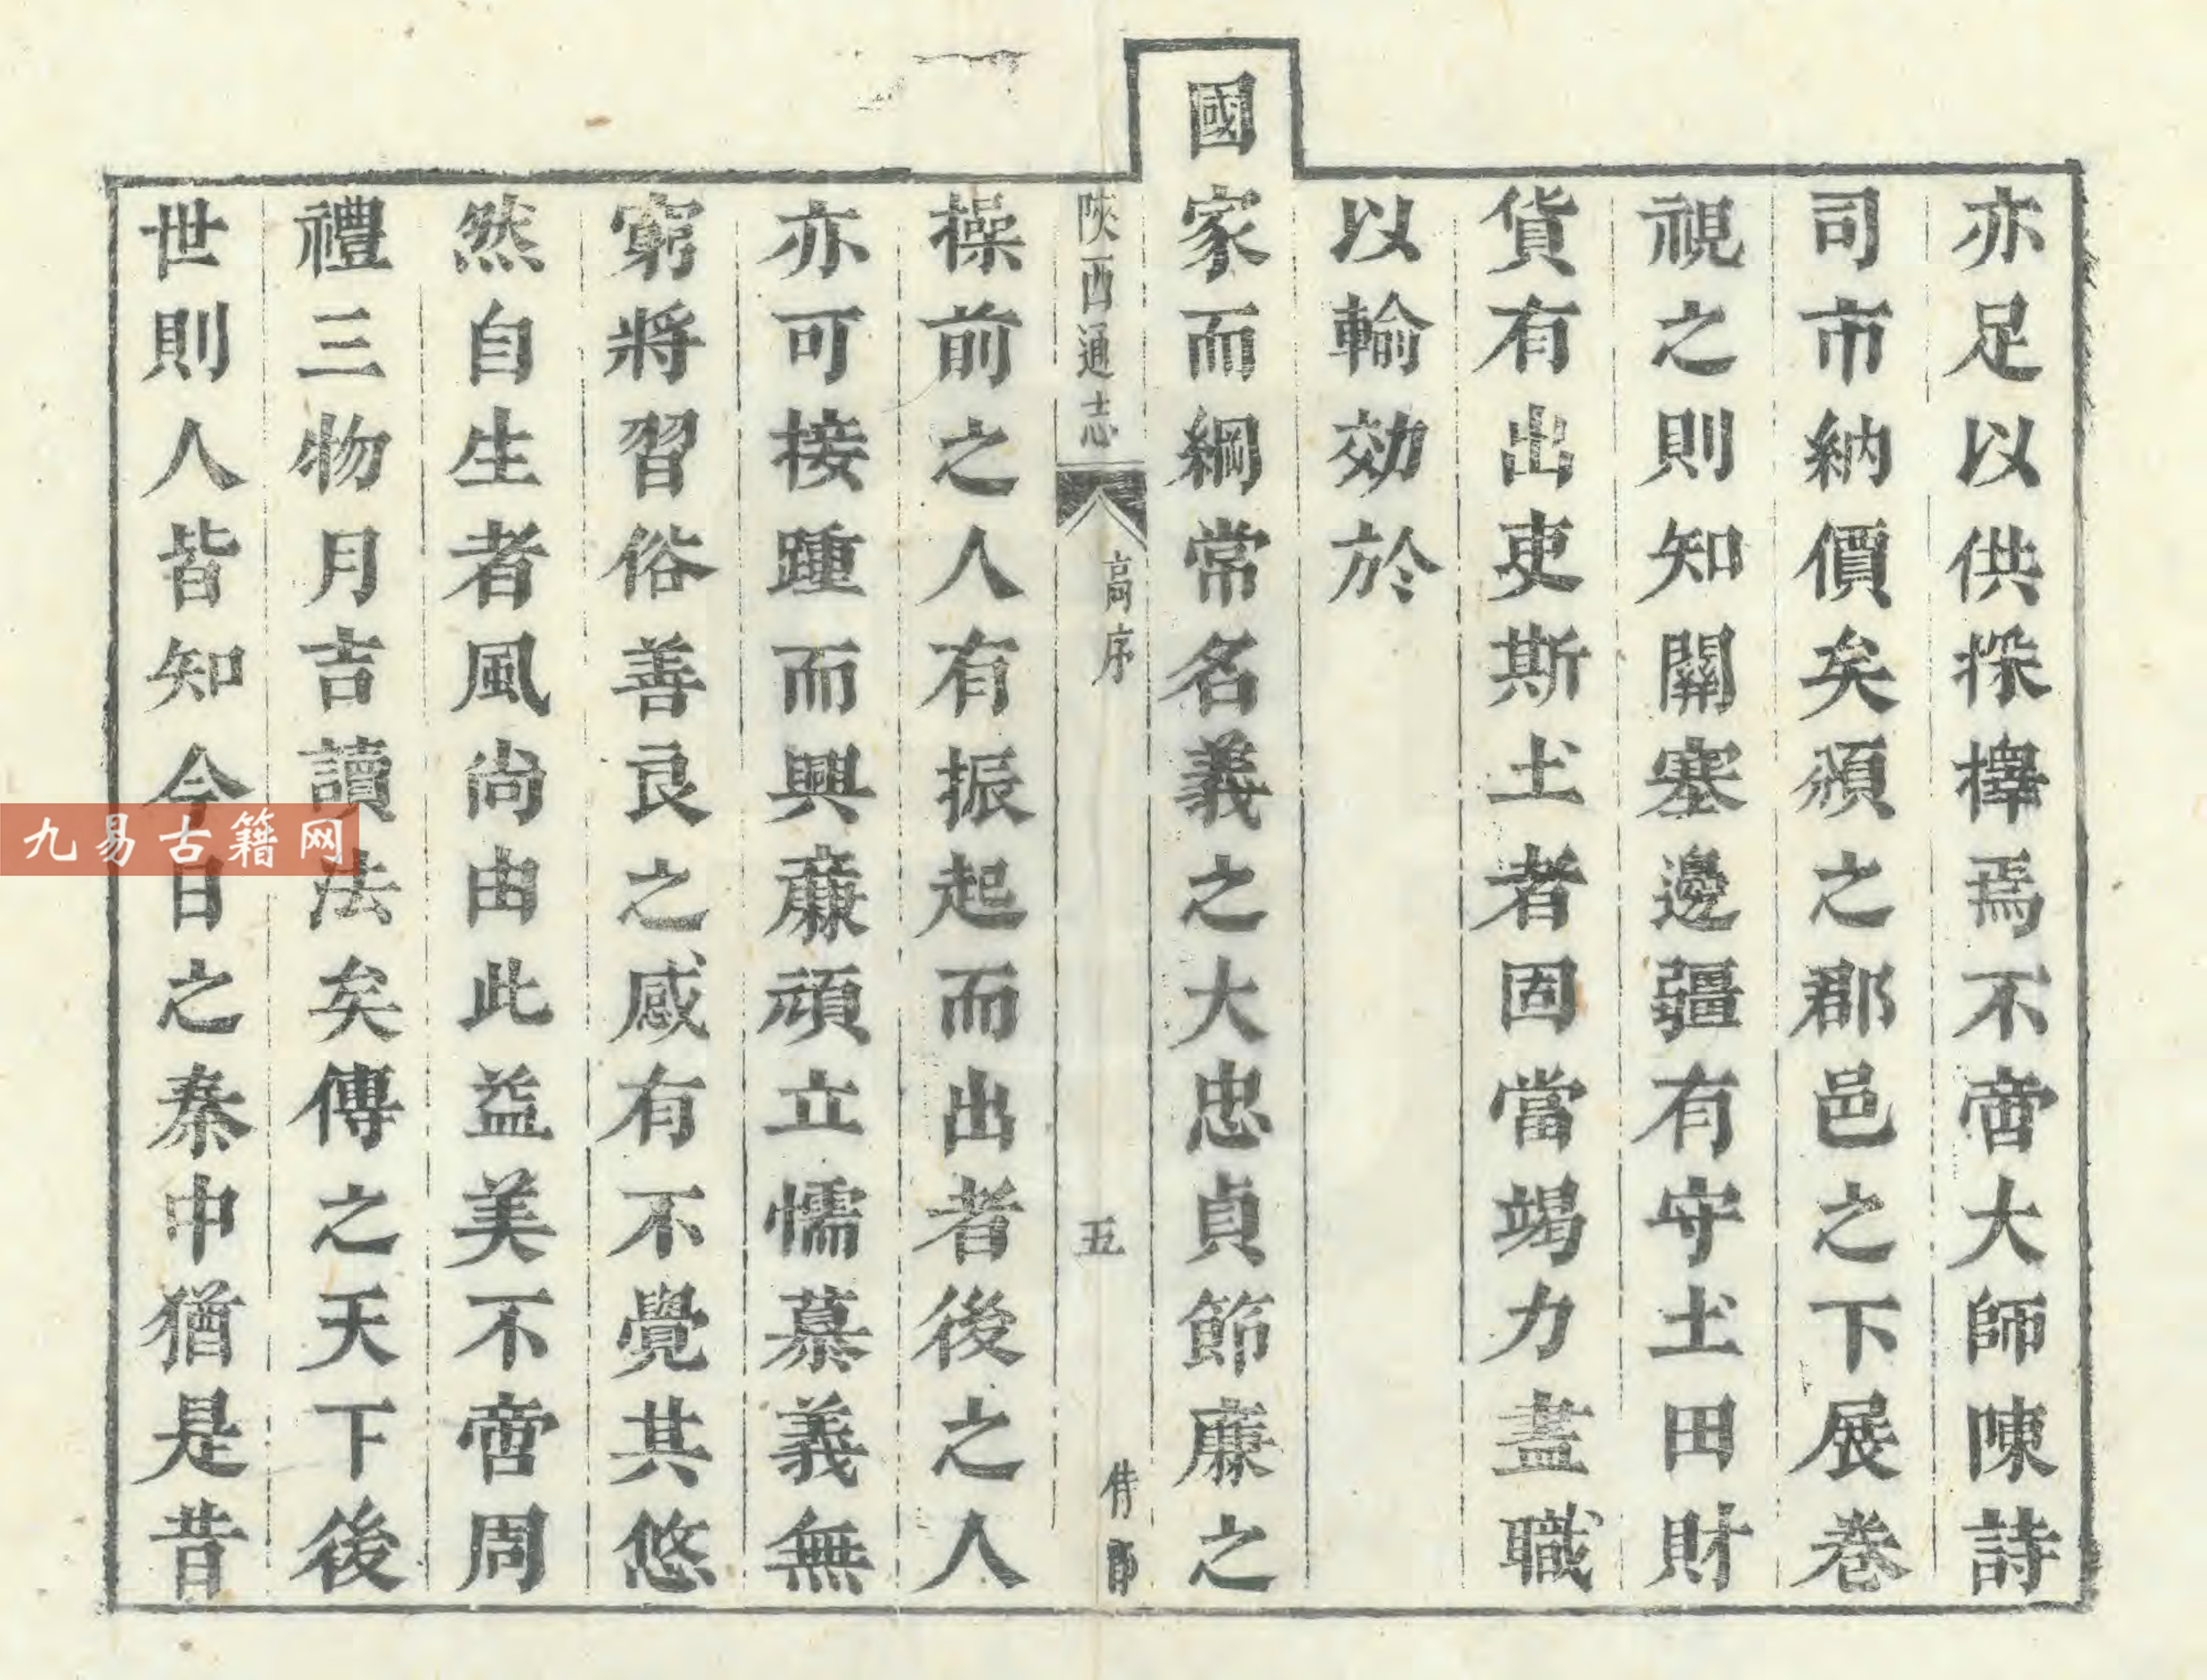 亦足以供採擇焉不啻大師陳詩
司市納價矣頒之郡邑之下展卷
視之則知關塞邊疆有守土田財
貨有出吏斯土者固當竭力盡職
以輸効於
國家而綱常名義之大忠貞節廉之
陝西通志
高序
五
操前之人有振起而出者後之人
亦可接踵而興廉頑立懦慕義無
窮將習俗善良之感有不覺其悠
然自生者風尚由此益美不啻周
禮三物月吉讀法矣傳之天下後
世則人皆知今日之秦中猶是昔
九易古籍网